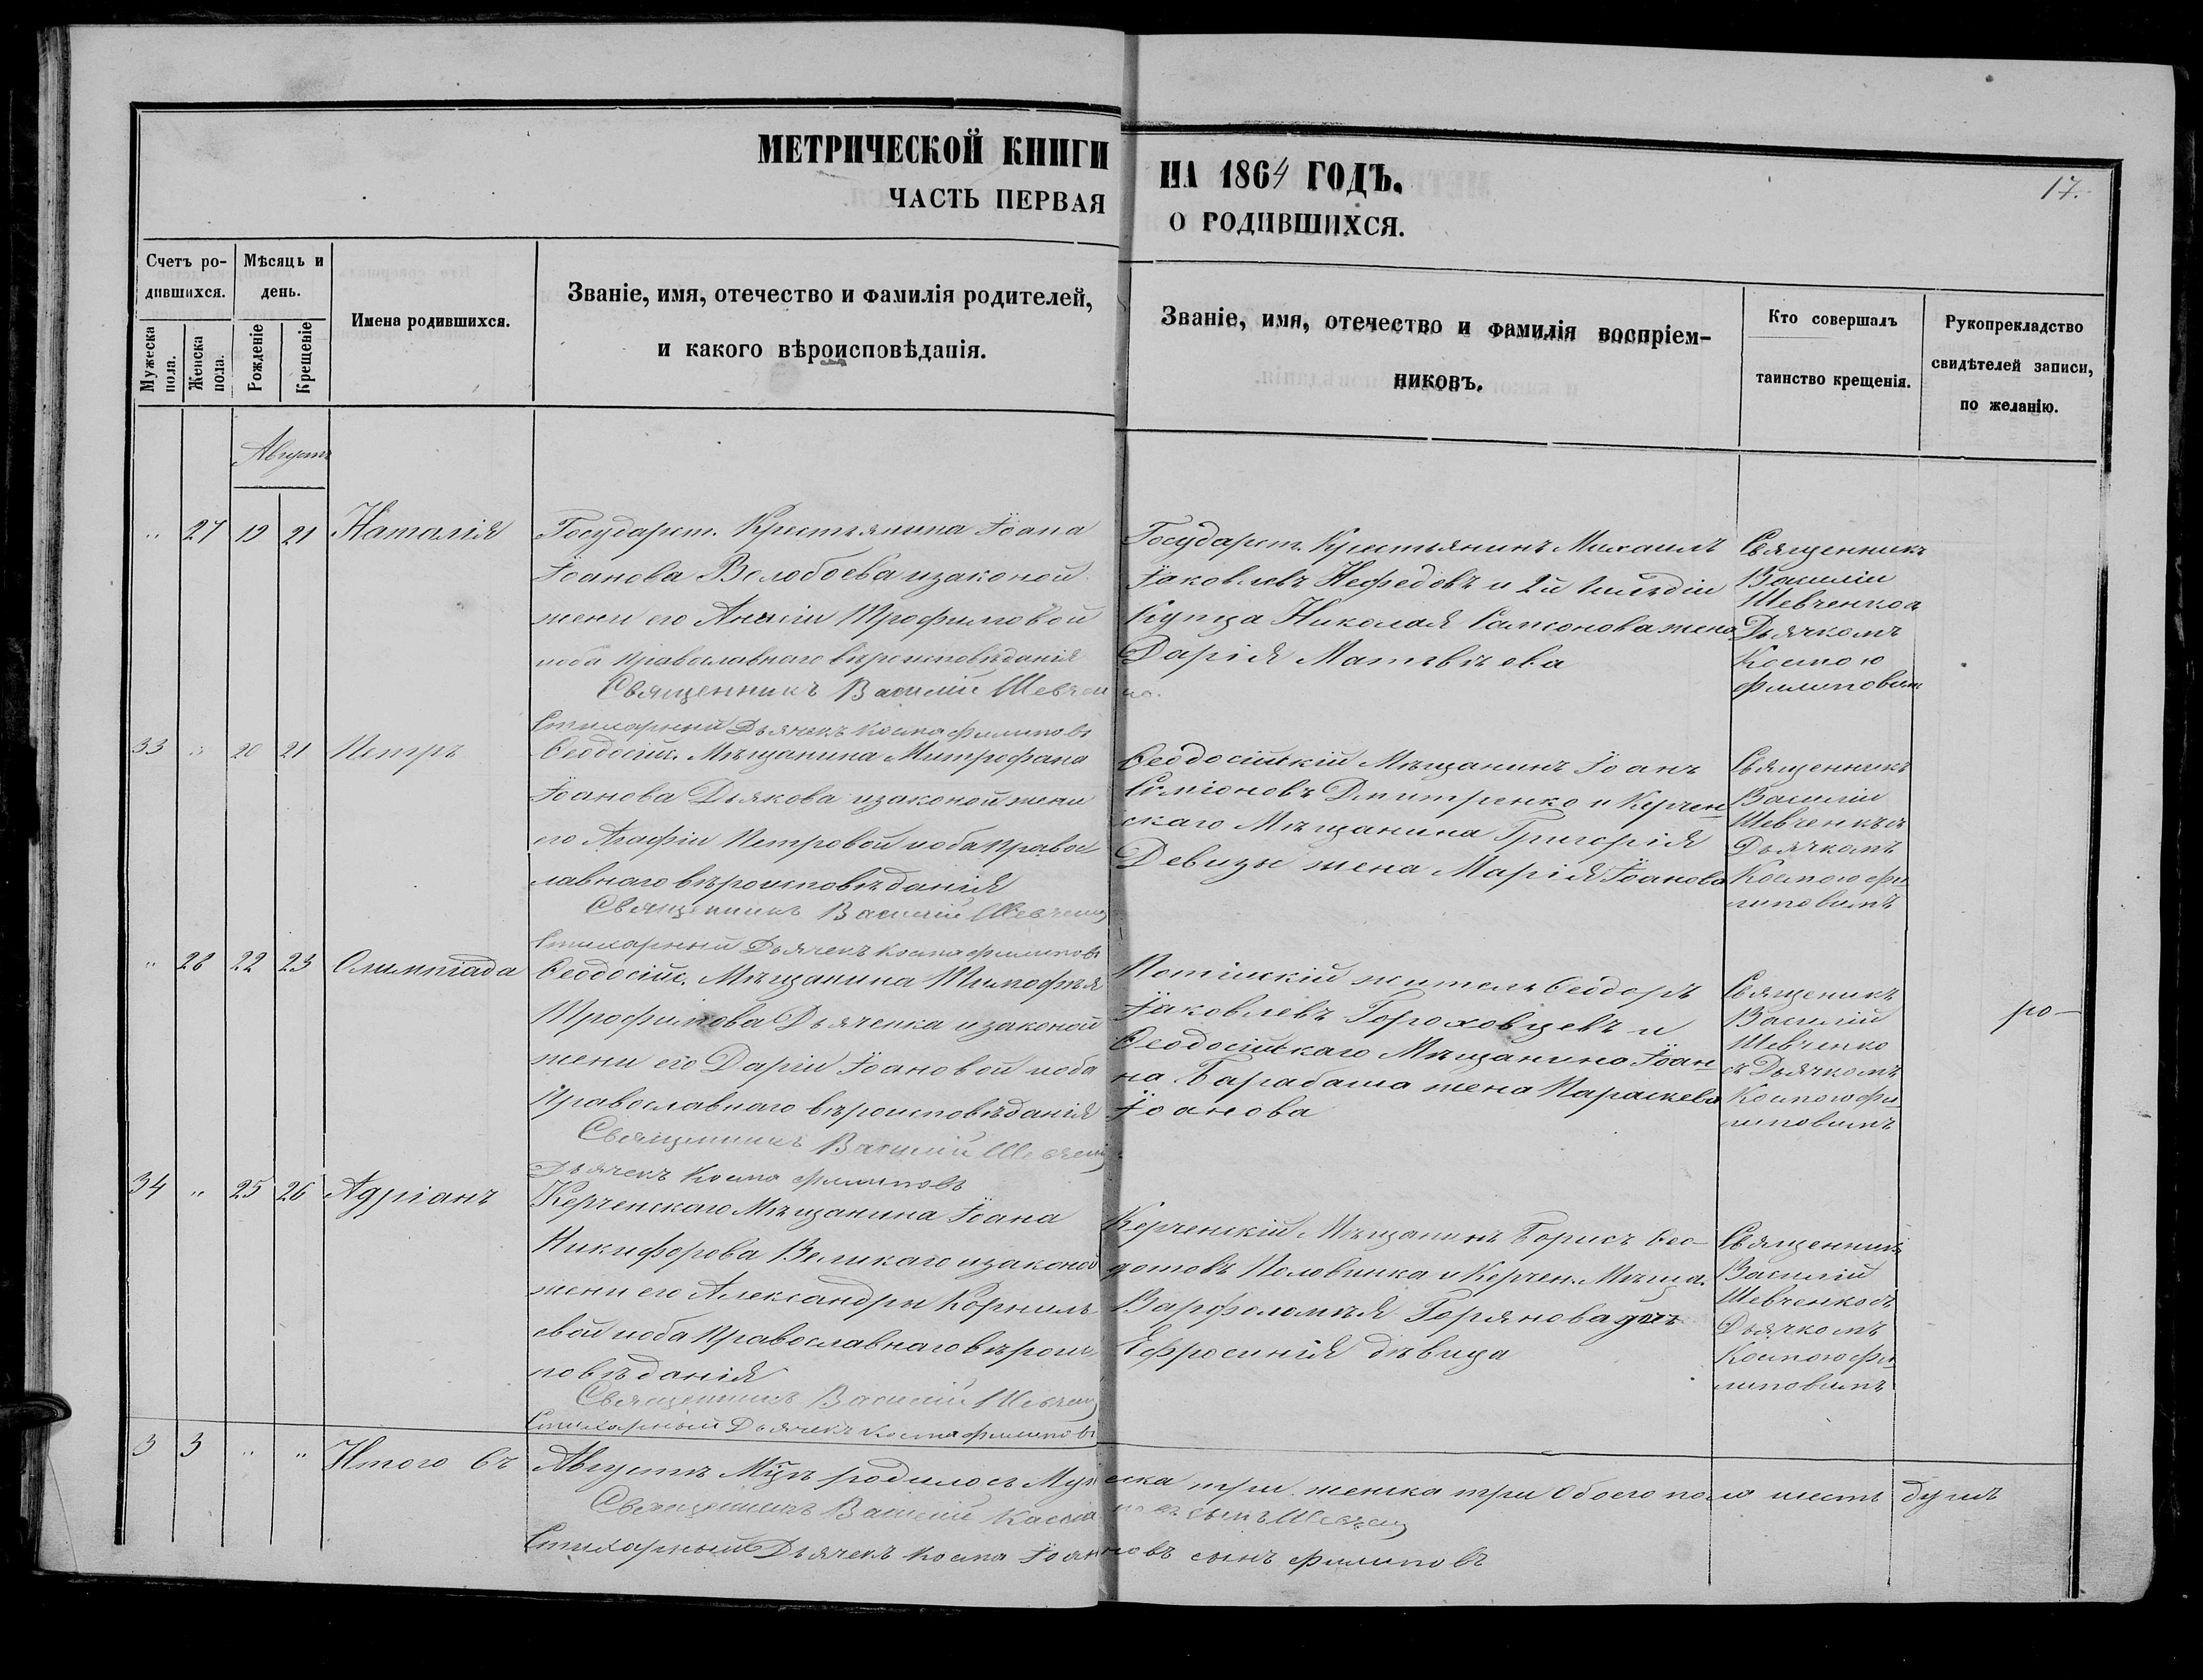 МЕТРИЧЕСКОЙ КНИГИ НА 1864 ГОДЪ.
17.
ЧАСТЬ ПЕРВАЯ О РОДИВШИХСЯ.
Счетъ ро-
дившихся.
Мужеска пола.
Женска пола.
Мѣсяцъ и
день.
Рожденіе
Крещеніе
Имена родившихся.
Званіе, имя, отечество и фамилія родителей,
и какого вѣроисповѣданія.
Званіе, имя, отечество и фамилія воспріем-
никовъ.
Кто совершалъ
таинство крещенія.
Рукоприкладство
свидѣтелей записи,
по желанію.
Августъ
" 27 19 21 Наталія
Государст. Крестьянина Іоана
Іоанова Волобоева и законой
жени его Анисіи Трофимовой
иоба православнаго вѣроисповѣданія
Священникъ Василій Шевченко.
Стихарный Дьячекъ Косма Филиповъ
Государст. Крестьянинъ Михаилъ
Іаковлевъ Нефедовъ и 2й Гильдіи
Купца Николая Самсонова жена
Дарія Матвѣева
Священникъ
Василій
Шевченко съ
Дьячкомъ
Космою
Филиповым
33 " 20 21 Петръ
Феодосійс. Мѣщанина Митрофана
Іоанова Дьякова и законой жени
его Агафіи Петровой иоба Правос
лавнаго вѣроисповѣданія
Священникъ Василій Шевченко
Стихарный Дьячекъ Косма Филиповъ
Феодосійскій Мѣщанинъ Іоанъ
Симіоновъ Дмитренко и Керчен
скаго Мѣщанина Григорія
Девизы жена Марія Іоанова
Священникъ
Василій
Шевченкъ съ
Дьячкомъ
Космою Фи
липовымъ
" 28 22 23 Олимпіада
Феодосійс. Мѣщанина Тимофѣя
Трофимова Дьяченка и законой
жени его Даріи Іоановой иоба
Православнаго вѣроисповѣданія
Священникъ Василій Шевченко
Дьячекъ Косма Филиповъ
Потійскій житель Феодоръ
Іаковлевъ Гороховцевъ и
Феодосійскаго Мѣщанина Іоан-
на Барабаша жена Параскева
Іоанова
Священикъ
Василій
Шевченко
съ Дьячкомъ
Космою Фи
липовымъ
ро-
34 " 25 26 Адріанъ
Керченскаго Мѣщанина Іоана
Никифорова Великаго и законой
жени его Александры Корниль
евой иоба Православнаго вѣроис
повѣданія
Священникъ Василій Шевченко
Стихарный Дьячекъ Косма Филиповъ
Керченскій Мѣщанинъ Борисъ Фео-
дотовъ Половинка и Керчен. Мѣща.
Варфоломѣя Горянова дчь
Ефросинія дѣвица
Священникъ
Василій
Шевченко съ
Дьячкомъ
Космою Фи
липовымъ
3 3 " " Итого въ Августѣ Мцѣ родилось Мужеска три женска три Обоего пола шесть душъ
Священникъ Василій сынъ Шевченко
Стихарный Дьячекъ Косма Іоанновъ сынъ Филиповъ